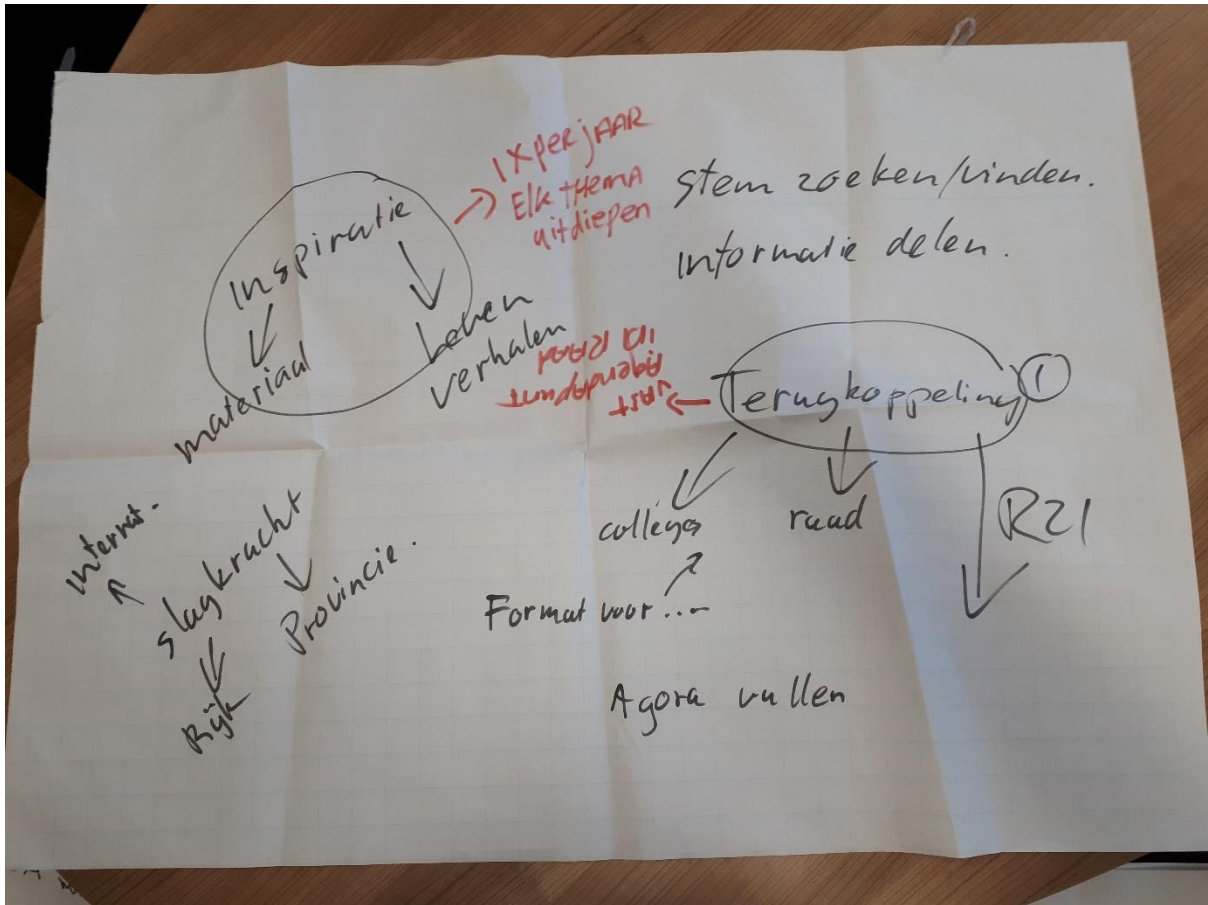 Inspiratie
materiaal
Leven
verhalen
1x per jAAR
Elk tHEMA
uitdiepen
stem zoeken/vinden.
informatie delen.
Terugkoppeling ①
VAST
AgendApunt
i/d RAAd
colleges
raad
R21
Format voor ...
Agora vullen
Internat.
slagkracht
Provincie.
Rijk